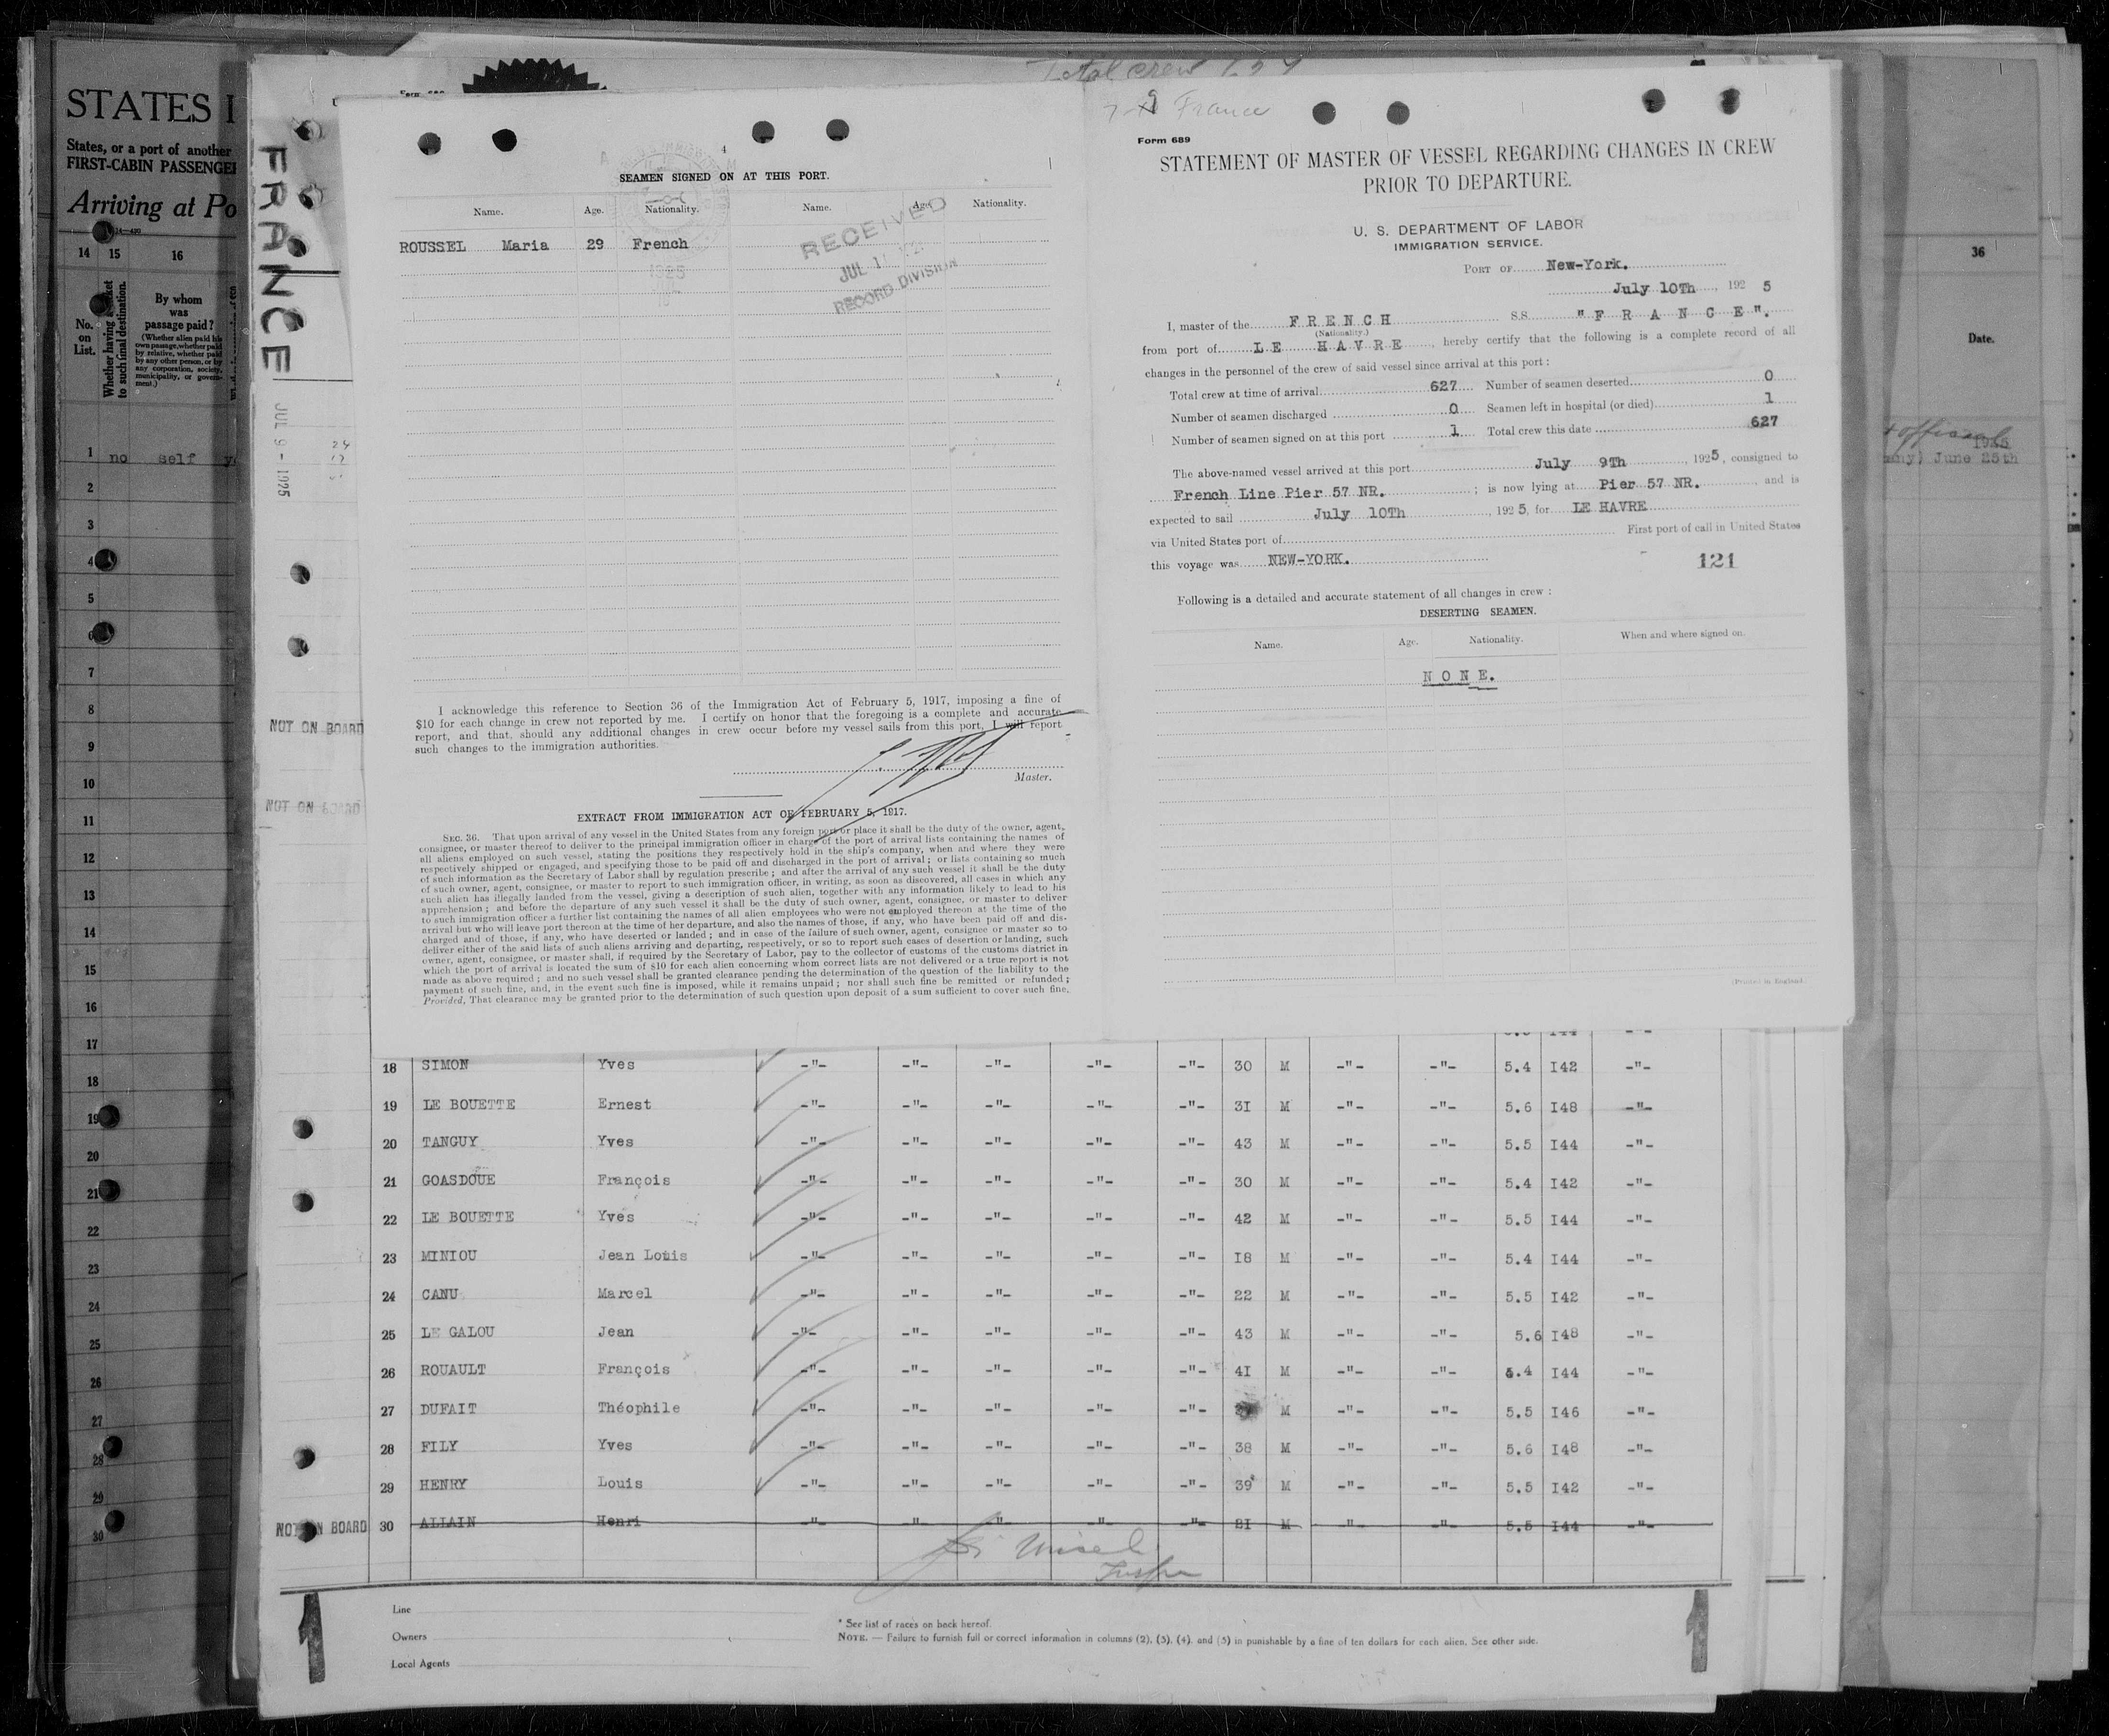 Total crew
STATES
States, or a port of another
FIRST-CABIN PASSENGE
Arriving at Po
14 15 16
No. on List.
Whether having ticket to such final destination.
By whom was passage paid?
(Whether alien paid his own passage, whether paid by relative, whether paid by any other person, or by any corporation, society, municipality, or government.)
1 no self
2
3
4
5
6
7
8
9
10
11
12
13
14
15
16
17
18
19
20
21
22
23
24
25
26
27
28
29
30
FRANCE
JUL 9 - 1925
NOT ON BOARD
NOT ON BOARD
4
SEAMEN SIGNED ON AT THIS PORT.
Name. Age. Nationality. Name. Age. Nationality.
ROUSSEL Maria 29 French
RECEIVED
JUL 1
RECORD DIVISION
1925
I acknowledge this reference to Section 36 of the Immigration Act of February 5, 1917, imposing a fine of
$10 for each change in crew not reported by me. I certify on honor that the foregoing is a complete and accurate
report, and that, should any additional changes in crew occur before my vessel sails from this port, I will report
such changes to the immigration authorities.
Master.
EXTRACT FROM IMMIGRATION ACT OF FEBRUARY 5, 1917.
SEC. 36. That upon arrival of any vessel in the United States from any foreign port or place it shall be the duty of the owner, agent,
consignee, or master thereof to deliver to the principal immigration officer in charge of the port of arrival lists containing the names of
all aliens employed on such vessel, stating the positions they respectively hold in the ship's company, when and where they were
respectively shipped or engaged, and specifying those to be paid off and discharged in the port of arrival; or lists containing so much
of such information as the Secretary of Labor shall by regulation prescribe; and after the arrival of any such vessel it shall be the duty
of such owner, agent, consignee, or master to report to such immigration officer, in writing, as soon as discovered, all cases in which any
such alien has illegally landed from the vessel, giving a description of such alien, together with any information likely to lead to his
apprehension; and before the departure of any such vessel it shall be the duty of such owner, agent, consignee, or master to deliver
to such immigration officer a further list containing the names of all alien employees who were not employed thereon at the time of the
arrival but who will leave port thereon at the time of her departure, and also the names of those, if any, who have been paid off and dis-
charged and of those, if any, who have deserted or landed; and in case of the failure of such owner, agent, consignee or master so to
deliver either of the said lists of such aliens arriving and departing, respectively, or so to report such cases of desertion or landing, such
owner, agent, consignee, or master shall, if required by the Secretary of Labor, pay to the collector of customs of the customs district in
which the port of arrival is located the sum of $10 for each alien concerning whom correct lists are not delivered or a true report is not
made as above required; and no such vessel shall be granted clearance pending the determination of the question of the liability to the
payment of such fine, and, in the event such fine is imposed, while it remains unpaid; nor shall such fine be remitted or refunded;
Provided, That clearance may be granted prior to the determination of such question upon deposit of a sum sufficient to cover such fine.
France
Form 689
STATEMENT OF MASTER OF VESSEL REGARDING CHANGES IN CREW
PRIOR TO DEPARTURE.
U. S. DEPARTMENT OF LABOR
IMMIGRATION SERVICE.
PORT OF New-York.
July 10Th, 1925
I, master of the FRENCH S.S. "F R A N C E".
(Nationality.)
from port of LE HAVRE, hereby certify that the following is a complete record of all
changes in the personnel of the crew of said vessel since arrival at this port:
Total crew at time of arrival 627 Number of seamen deserted 0
Number of seamen discharged 0 Seamen left in hospital (or died) 1
Number of seamen signed on at this port 1 Total crew this date 627
The above-named vessel arrived at this port July 9Th, 1925, consigned to
French Line Pier 57 NR.; is now lying at Pier 57 NR. and is
expected to sail July 10Th, 1925, for LE HAVRE
via United States port of First port of call in United States
this voyage was NEW-YORK.
121
Following is a detailed and accurate statement of all changes in crew:
DESERTING SEAMEN.
Name. Age. Nationality. When and where signed on.
N O N E.
(Printed in England.
36
Date.
official
1925
any) June 25th
18 SIMON Yves -"- -"- -"- -"- -"- 30 M -"- -"- 5.4 I42 -"-
19 LE BOUETTE Ernest -"- -"- -"- -"- -"- 3I M -"- -"- 5.6 I48 -"-
20 TANGUY Yves -"- -"- -"- -"- -"- 43 M -"- -"- 5.5 I44 -"-
21 GOASDOUE François -"- -"- -"- -"- -"- 30 M -"- -"- 5.4 I42 -"-
22 LE BOUETTE Yves -"- -"- -"- -"- -"- 42 M -"- -"- 5.5 I44 -"-
23 MINIOU Jean Louis -"- -"- -"- -"- -"- I8 M -"- -"- 5.4 I44 -"-
24 CANU Marcel -"- -"- -"- -"- -"- 22 M -"- -"- 5.5 I42 -"-
25 LE GALOU Jean -"- -"- -"- -"- -"- 43 M -"- -"- 5.6 I48 -"-
26 ROUAULT François -"- -"- -"- -"- -"- 4I M -"- -"- 5.4 I44 -"-
27 DUFAIT Théophile -"- -"- -"- -"- -"- M -"- -"- 5.5 I46 -"-
28 FILY Yves -"- -"- -"- -"- -"- 38 M -"- -"- 5.6 I48 -"-
29 HENRY Louis -"- -"- -"- -"- -"- 39 M -"- -"- 5.5 I42 -"-
NOT ON BOARD 30 ALLAIN Henri -"- -"- -"- -"- -"- 2I M -"- -"- 5.5 I44 -"-
1 1
Line
Owners
Local Agents
* See list of races on back hereof.
NOTE. — Failure to furnish full or correct information in columns (2), (3), (4), and (5) in punishable by a fine of ten dollars for each alien. See other side.